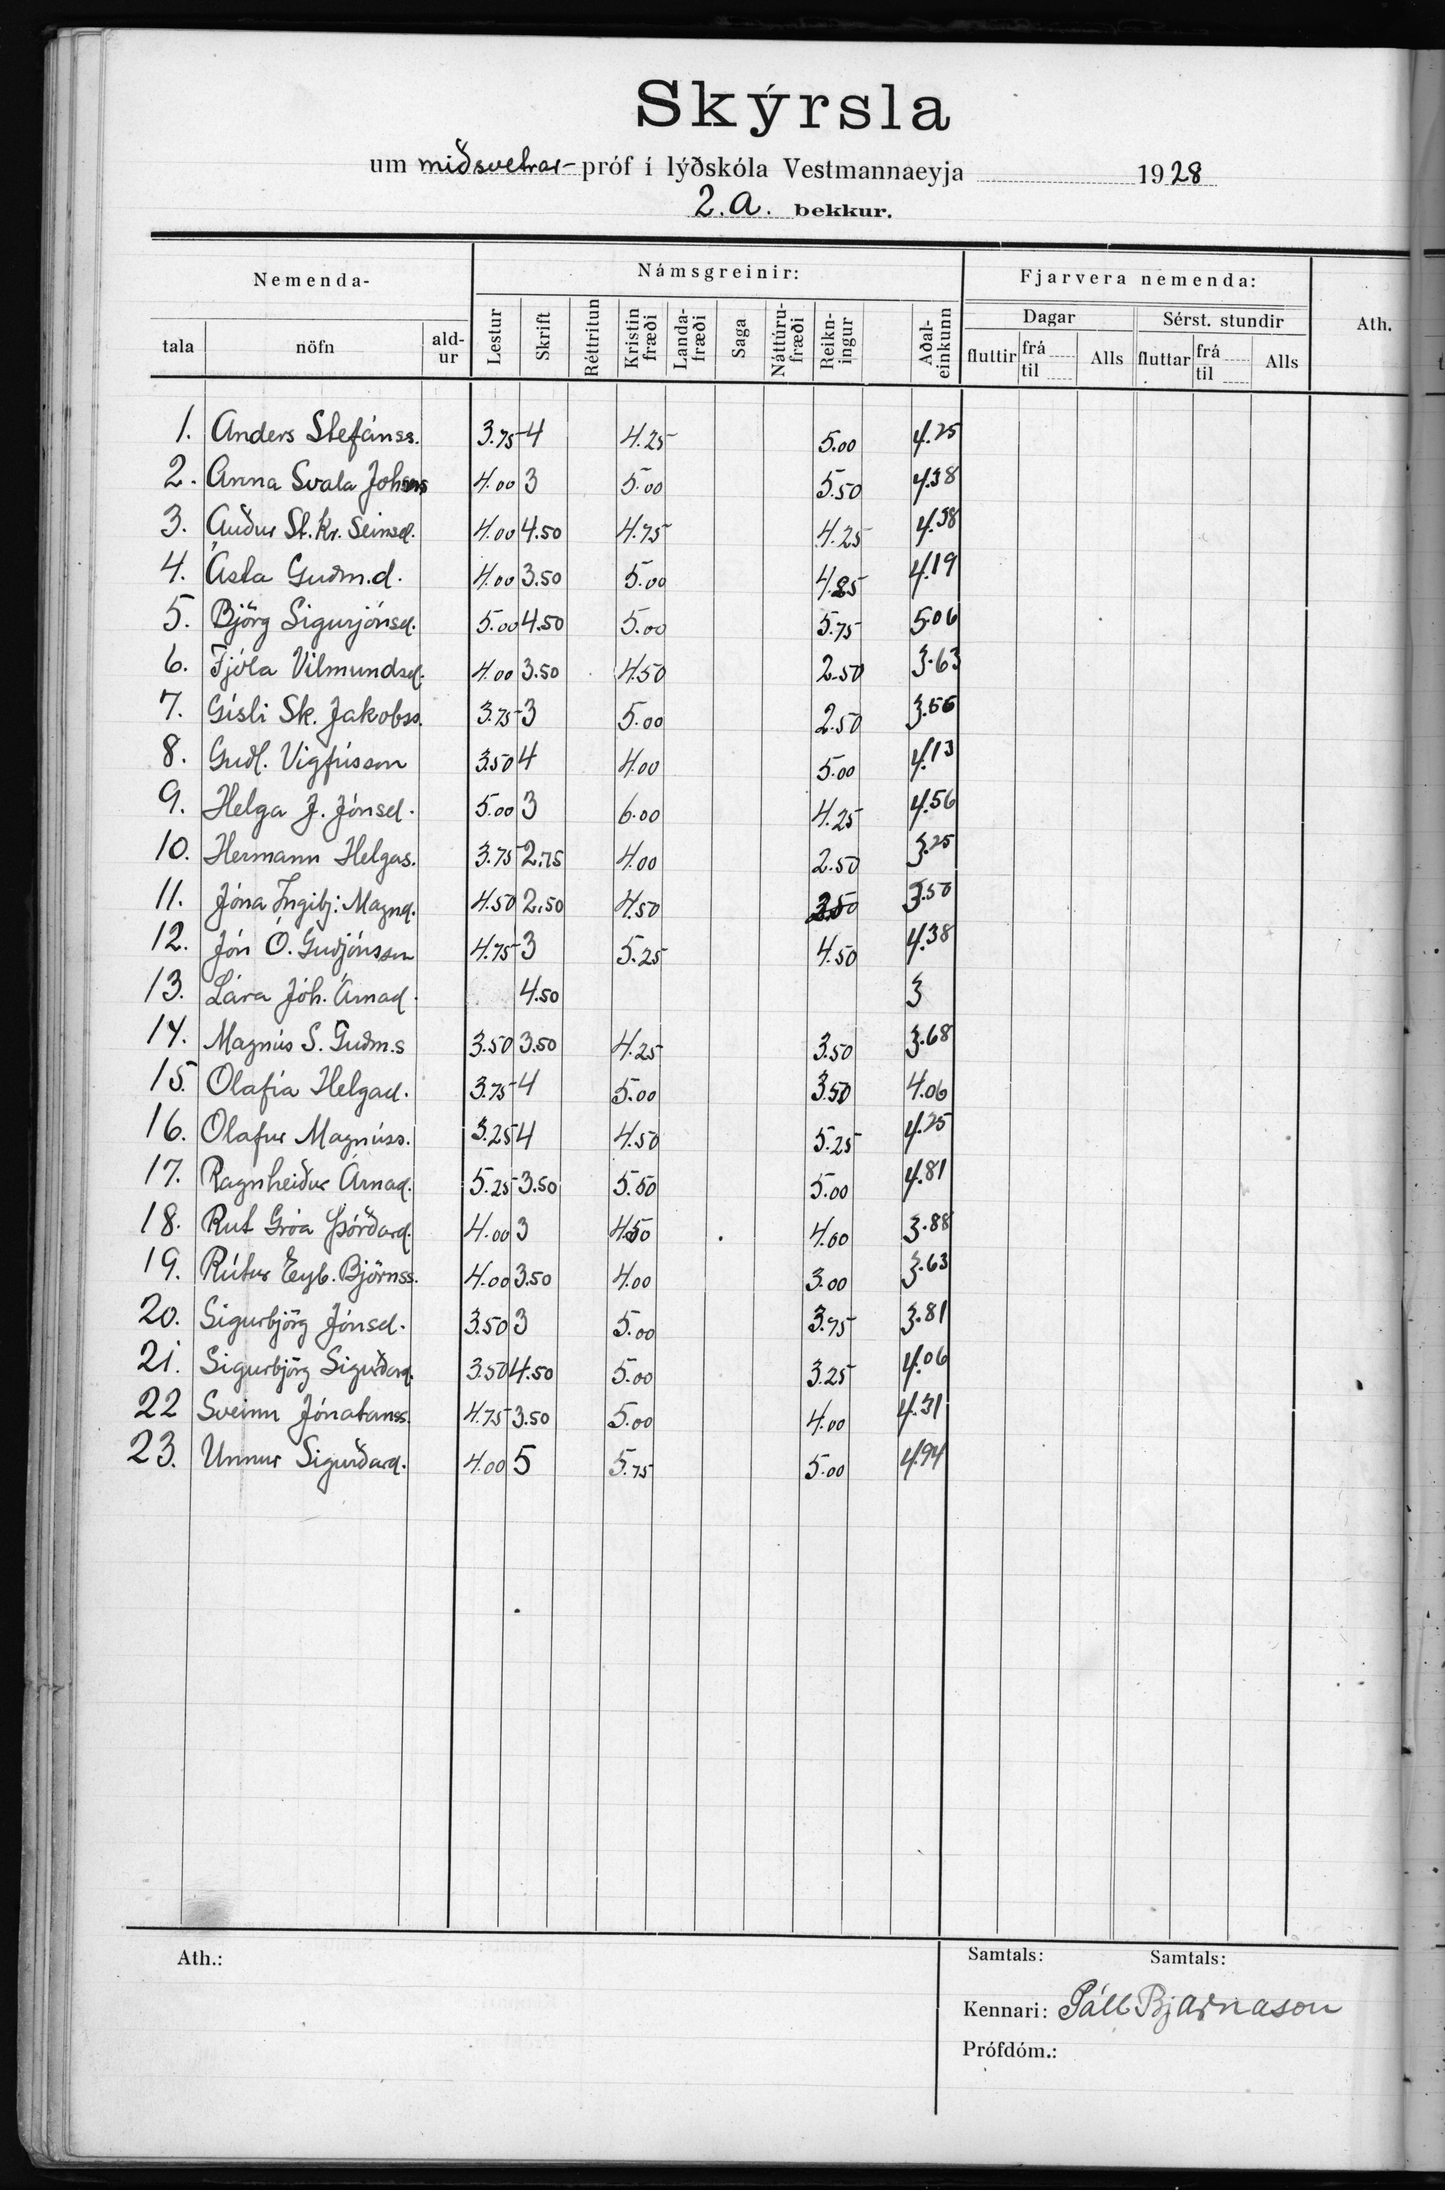 Skýrsla
um miðsvetrar- próf í lýðskóla Vestmannaeyja 1928
2.a. bekkur.
Nemenda- Námsgreinir: Fjarvera nemenda: Ath.
tala nöfn ald-ur Lestur Skrift Réttritun Kristin fræði Landa-fræði Saga Náttúru-fræði Reikn-ingur Aðal-einkunn Dagar Sérst. stundir
fluttir frá til Alls fluttar frá til Alls
1. Anders Stefánss. 3.75 4 4.25 5.00 4.25
2. Anna Svala Johsens 4.00 3 5.00 5.50 4.38
3. Auður St. Kr. Seinsd. 4.00 4.50 4.75 4.25 4.38
4. Ásta Guðm.d. 4.00 3.50 5.00 4.25 4.19
5. Björg Sigurjónsd. 5.00 4.50 5.00 5.75 5.06
6. Fjóla Vilmundsd. 4.00 3.50 4.50 2.50 3.63
7. Gísli Sk. Jakobss. 3.75 3 5.00 2.50 3.56
8. Guðl. Vigfússon 3.50 4 4.00 5.00 4.13
9. Helga J. Jónsd. 5.00 3 6.00 4.25 4.56
10. Hermann Helgas. 3.75 2.75 4.00 2.50 3.25
11. Jóna Ingibj: Magnd. 4.50 2.50 4.50 2.50 3.50
12. Jón Ó. Guðjónsson 4.75 3 5.25 4.50 4.38
13. Lára Jóh. Árnad. 4.50 3
14. Magnús S. Guðm.s 3.50 3.50 4.25 3.50 3.68
15. Olafía Helgad. 3.75 4 5.00 3.50 4.06
16. Olafur Magnúss. 3.25 4 4.50 5.25 4.25
17. Ragnheiður Árnad. 5.25 3.50 5.50 5.00 4.81
18. Rut Gróa Þórðard. 4.00 3 4.50 4.00 3.88
19. Rútur Eyb. Björnss. 4.00 3.50 4.00 3.00 3.63
20. Sigurbjörg Jónsd. 3.50 3 5.00 3.75 3.81
21. Sigurbjörg Sigurðard. 3.50 4.50 5.00 3.25 4.06
22 Sveinn Jónatanss. 4.75 3.50 5.00 4.00 4.31
23. Unnur Sigurðard. 4.00 5 5.75 5.00 4.94
Ath.: Samtals: Samtals:
Kennari: Páll Bjarnason
Prófdóm.: